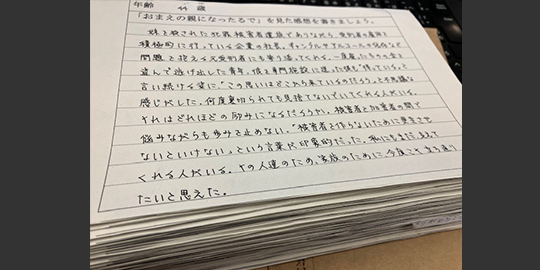 年齢 44 歳
「おまえの親になったるで」を見た感想を書きましょう。
妹を殺された犯罪被害者遺族でありながら、受刑者の雇用を
積極的に行っている企業の社長。ギャンブルやアルコールの依存など
問題を抱える元受刑者にも寄り添ってくれる。一度、会社のお金を
盗んで逃げ出した青年、彼を専門施設に送った後も"待っている"と
言い続ける姿に"この思いはどこから来ているのだろう"と不思議な
感じがした。何度裏切られても見捨てないでいてくれる人がいる。
それはどれほどの励みになるだろうか。被害者と加害者の間で
悩みながらも歩みを止めない。"被害者を作らないために更生させ
ないといけない"という言葉が印象的だった。私にもまだ、支えて
くれる人がいる。その人達のため、家族のために、今度こそ立ち直り
たいと思えた。